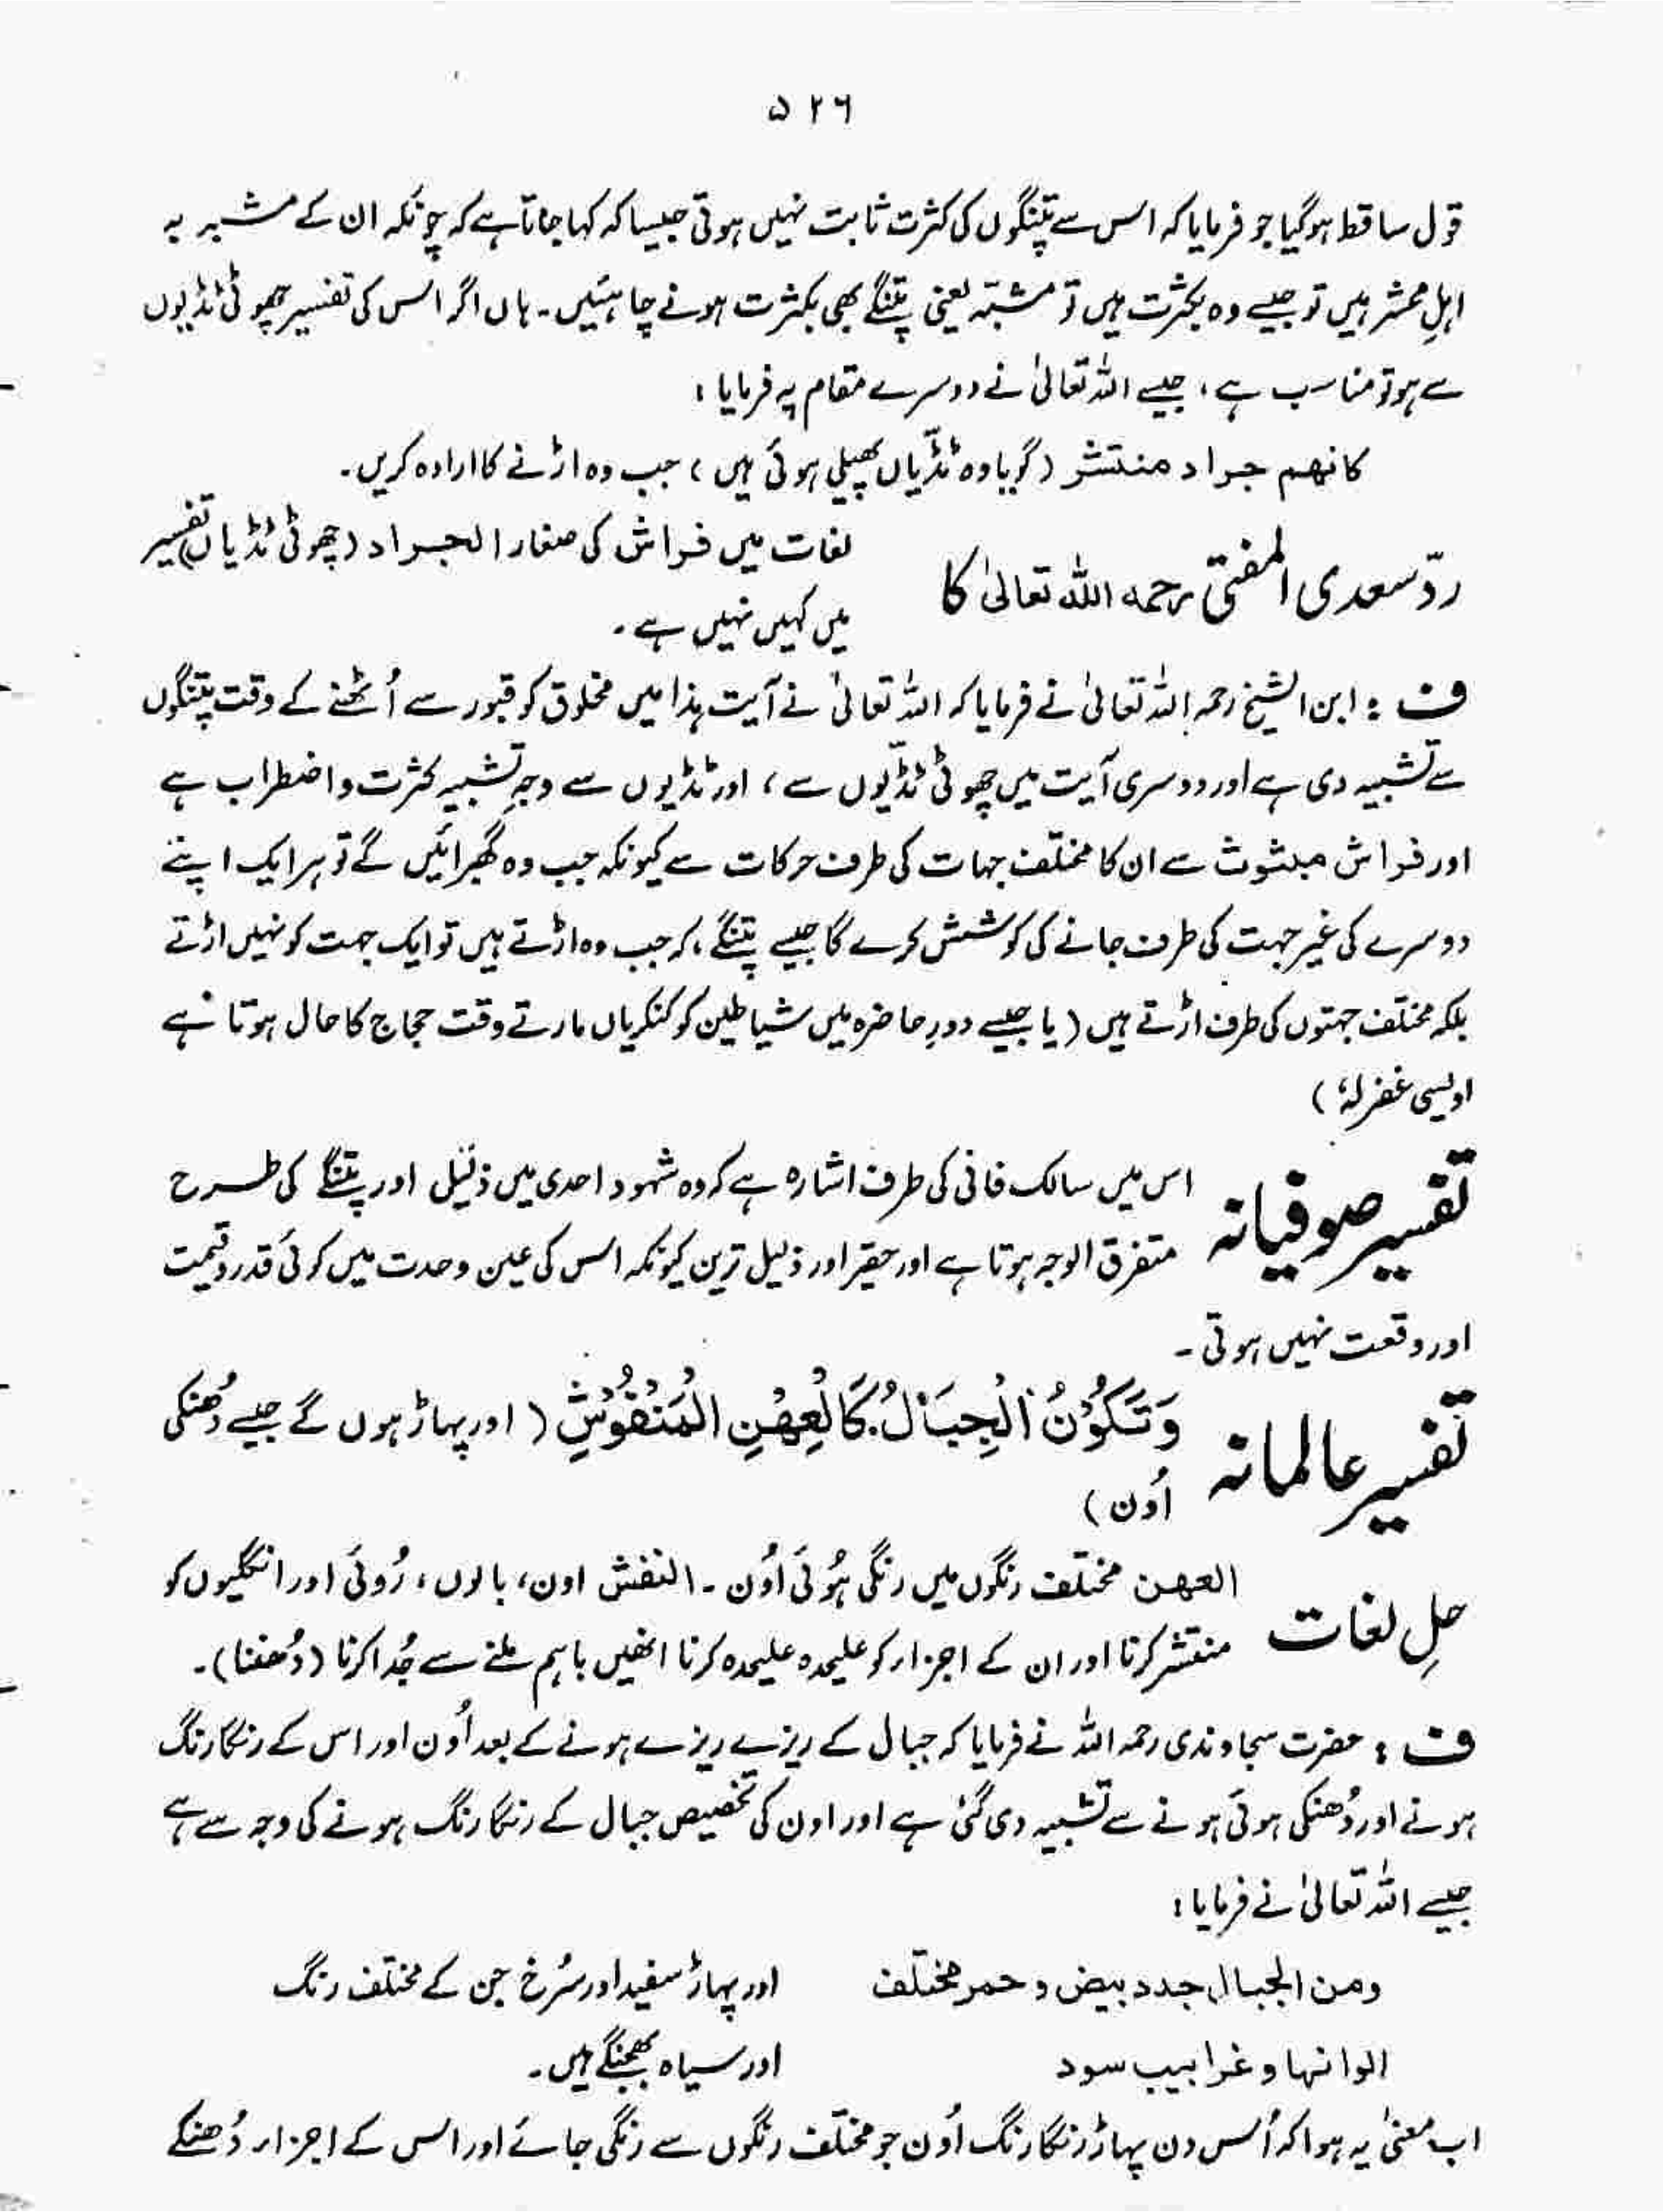 ۵۲۶
قول ساقط ہوگیا جو فرمایا کہ اس سے پتنگوں کی کثرت ثابت نہیں ہوتی جیسا کہ کہا جاتا ہے کہ چونکہ ان کے مشبہ بہ
اہلِ محشر ہیں تو جیسے وہ بکثرت ہیں تو مشبّہ یعنی پتنگے بھی بکثرت ہونے چاہئیں۔ ہاں اگر اس کی تفسیر چھوٹی ٹڈیوں
سے ہو تو مناسب ہے، جیسے اللہ تعالیٰ نے دوسرے مقام پہ فرمایا:
کانھم جراد منتشر (گویا وہ ٹڈّیاں پھیلی ہوئی ہیں) جب وہ اڑنے کا ارادہ کریں۔
ردّ سعدی المفتی رحمہ اللہ تعالیٰ کا
لغات میں فراش کی صغار الجراد (چھوٹی ٹڈیاں) تفسیر
میں کہیں نہیں ہے۔
ف : ابن الشیخ رحمہ اللہ تعالیٰ نے فرمایا کہ اللہ تعالیٰ نے آیت ہذا میں مخلوق کو قبور سے اُٹھنے کے وقت پتنگوں
سے تشبیہ دی ہے اور دوسری آیت میں چھوٹی ٹڈّیوں سے، اور ٹڈیوں سے وجہِ تشبیہ کثرت و اضطراب ہے
اور فراش مبثوث سے ان کا مختلف جہات کی طرف حرکات سے کیونکہ جب وہ گھبرائیں گے تو ہر ایک اپنے
دوسرے کی غیر جہت کی طرف جانے کی کوشش کرے گا جیسے پتنگے، کہ جب وہ اڑتے ہیں تو ایک جہت کو نہیں اڑتے
بلکہ مختلف جہتوں کی طرف اڑتے ہیں (یا جیسے دورِ حاضرہ میں شیاطین کو کنکریاں مارتے وقت حجاج کا حال ہوتا ہے
اویسی غفرلہٗ)
تفسیر صوفیانہ
اس میں سالک فانی کی طرف اشارہ ہے کہ وہ شہود احدی میں ذلیل اور پتنگے کی طرح
متفرق الوجہ ہوتا ہے اور حقیر اور ذلیل ترین کیونکہ اس کی عین وحدت میں کوئی قدر و قیمت
اور وقعت نہیں ہوتی۔
تفسیر عالمانہ
وَتَكُوْنُ الْجِبَالُ كَالْعِهْنِ الْمَنْفُوْشِ (اور پہاڑ ہوں گے جیسے دُھنکی
اُون)
حلِ لغات
العھن مختلف رنگوں میں رنگی ہُوئی اُون۔ النفش اون، بالوں، رُوئی اور انگلیوں کو
منتشر کرنا اور ان کے اجزاء کو علیحدہ علیحدہ کرنا انھیں باہم ملنے سے جُدا کرنا (دُھننا)۔
ف : حضرت سجاوندی رحمہ اللہ نے فرمایا کہ جبال کے ریزے ریزے ہونے کے بعد اُون اور اس کے رنگارنگ
ہونے اور دُھنکی ہوئی ہونے سے تشبیہ دی گئی ہے اور اون کی تخصیص جبال کے رنگا رنگ ہونے کی وجہ سے ہے
جیسے اللہ تعالیٰ نے فرمایا:
ومن الجبال جدد بیض و حمر مختلف
الوانھا و غرابیب سود
اور پہاڑ سفید اور سُرخ جن کے مختلف رنگ
اور سیاہ بھجنگے ہیں۔
اب معنیٰ یہ ہوا کہ اُس دن پہاڑ رنگا رنگ اُون جو مختلف رنگوں سے رنگی جائے اور اس کے اجزاء دُھنکے